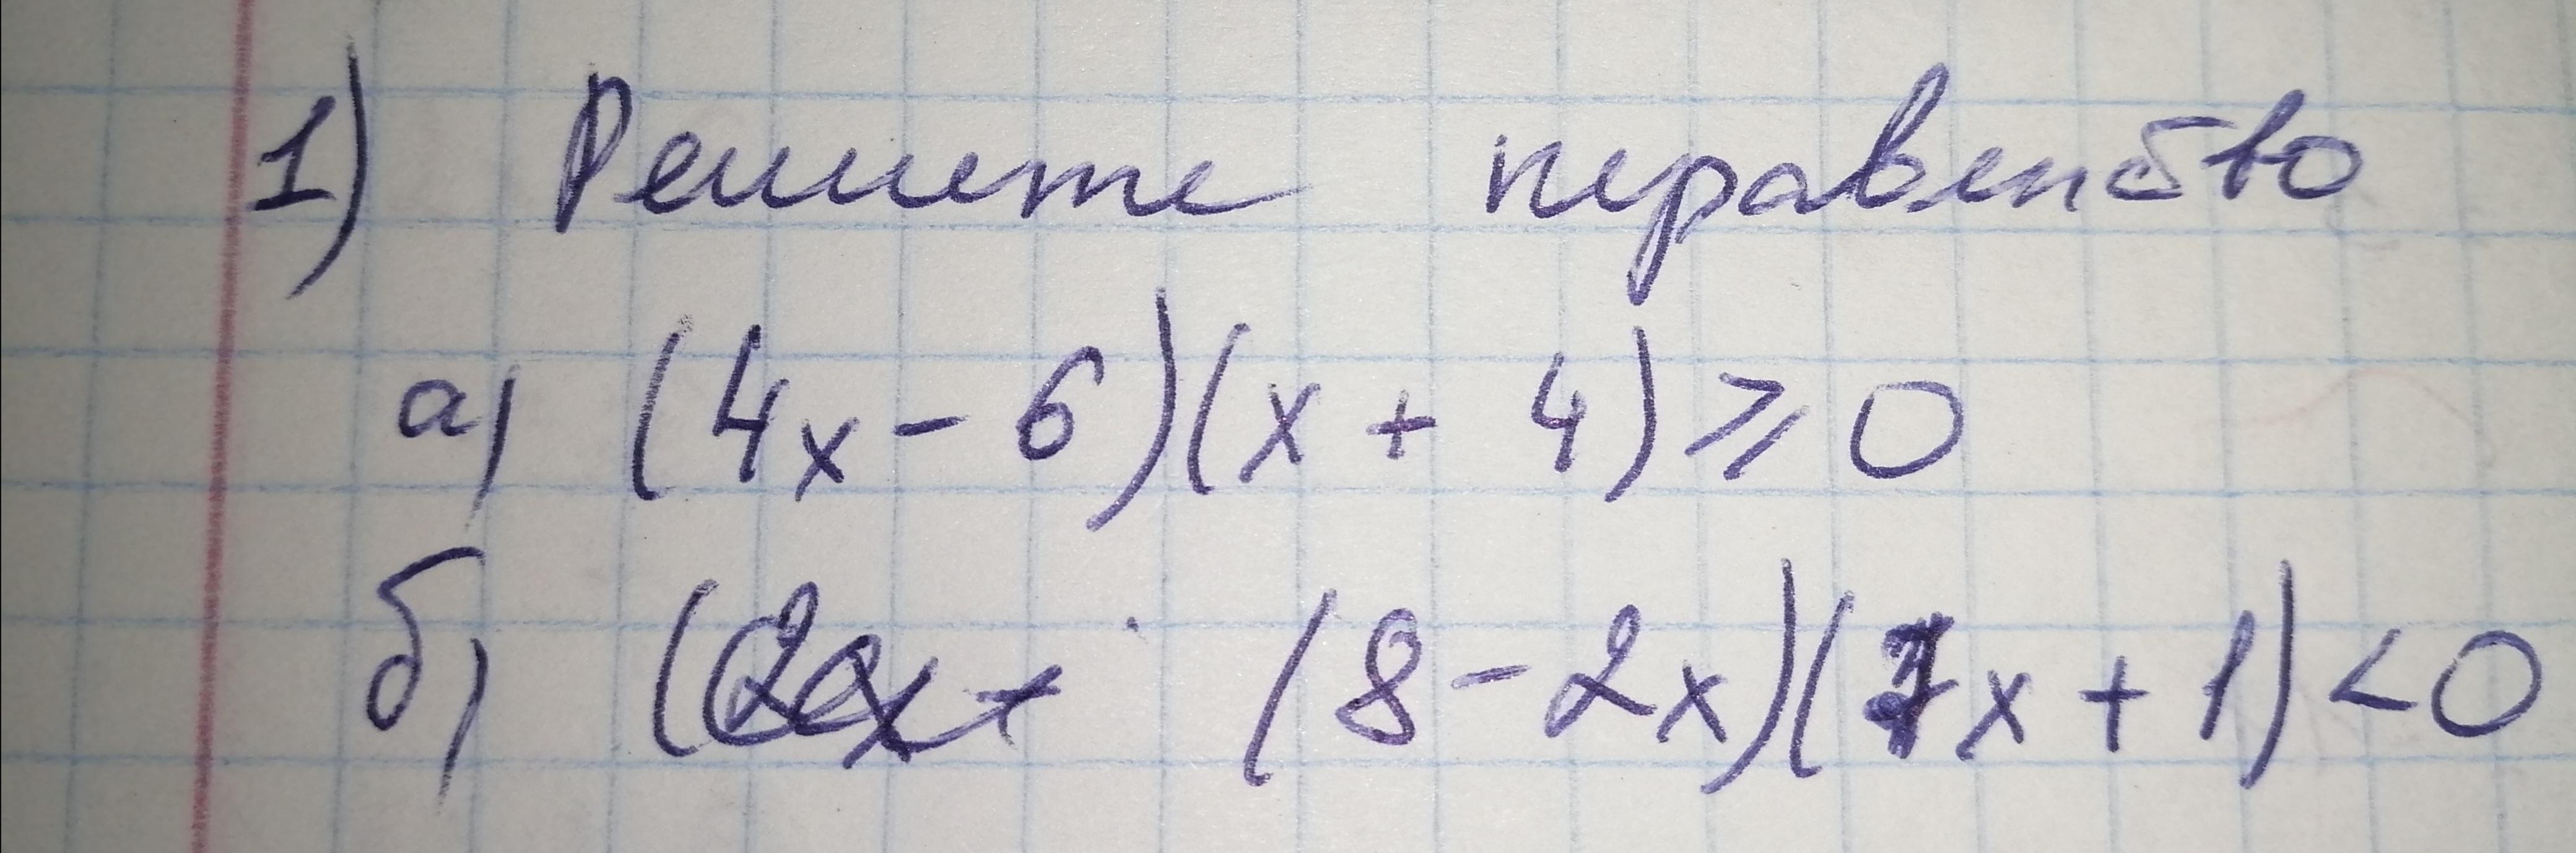 1) Решите неравенство
а) (4x - 6)(x + 4) ⩾ 0
б) (8 - 2x)(7x + 1) < 0